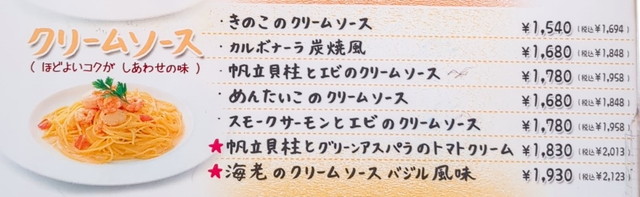 クリームソース
(ほどよいコクが しあわせの味)
・きのこのクリームソース ¥1,540 (税込¥1,694)
・カルボナーラ炭焼風 ¥1,680 (税込¥1,848)
・帆立貝柱とエビのクリームソース ¥1,780 (税込¥1,958)
・めんたいこのクリームソース ¥1,680 (税込¥1,848)
・スモークサーモンとエビのクリームソース ¥1,780 (税込¥1,958)
★帆立貝柱とグリーンアスパラのトマトクリーム ¥1,830 (税込¥2,013)
★海老のクリームソース バジル風味 ¥1,930 (税込¥2,123)